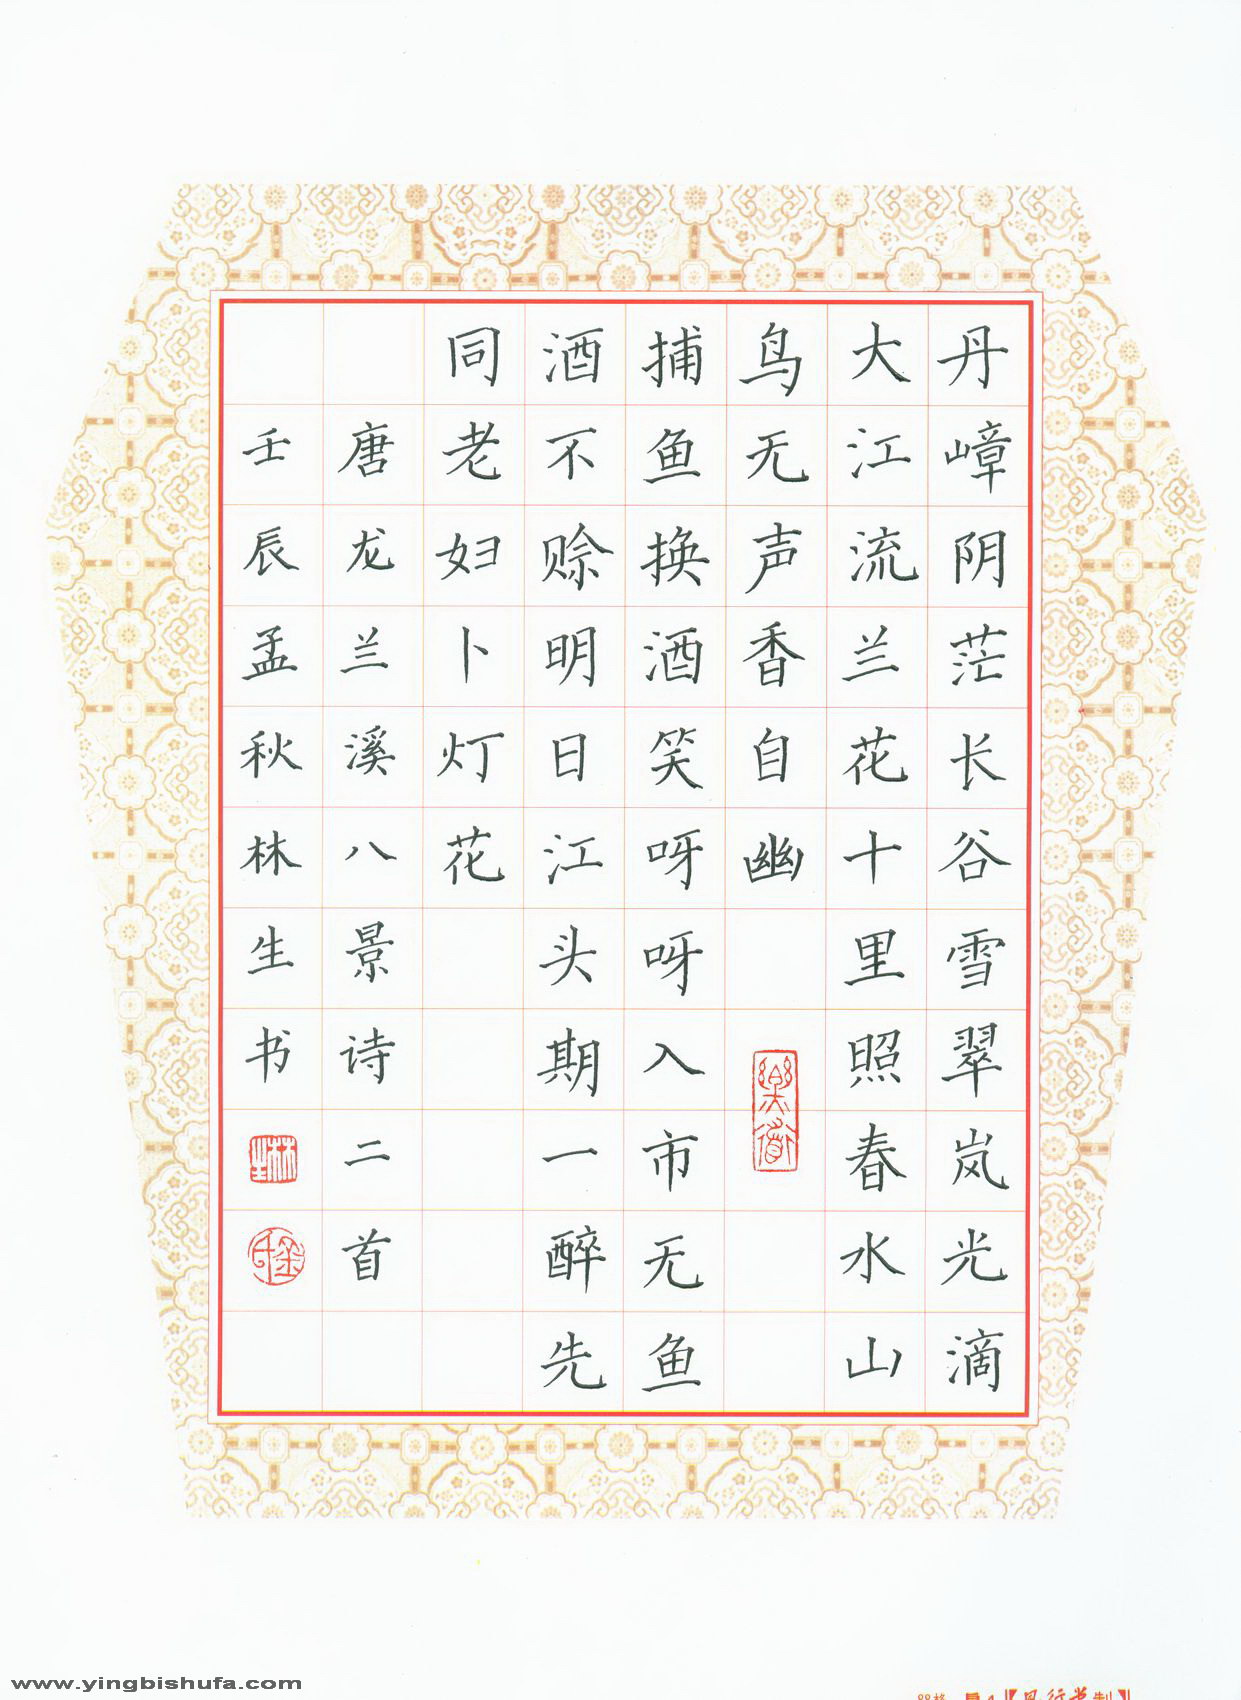 丹嶂阴茫长谷雪翠岚光滴
大江流兰花十里照春水山
鸟无声香自幽
捕鱼换酒笑呀呀入市无鱼
酒不赊明日江头期一醉先
同老妇卜灯花
唐龙兰溪八景诗二首
壬辰孟秋林生书
www.yingbishufa.com